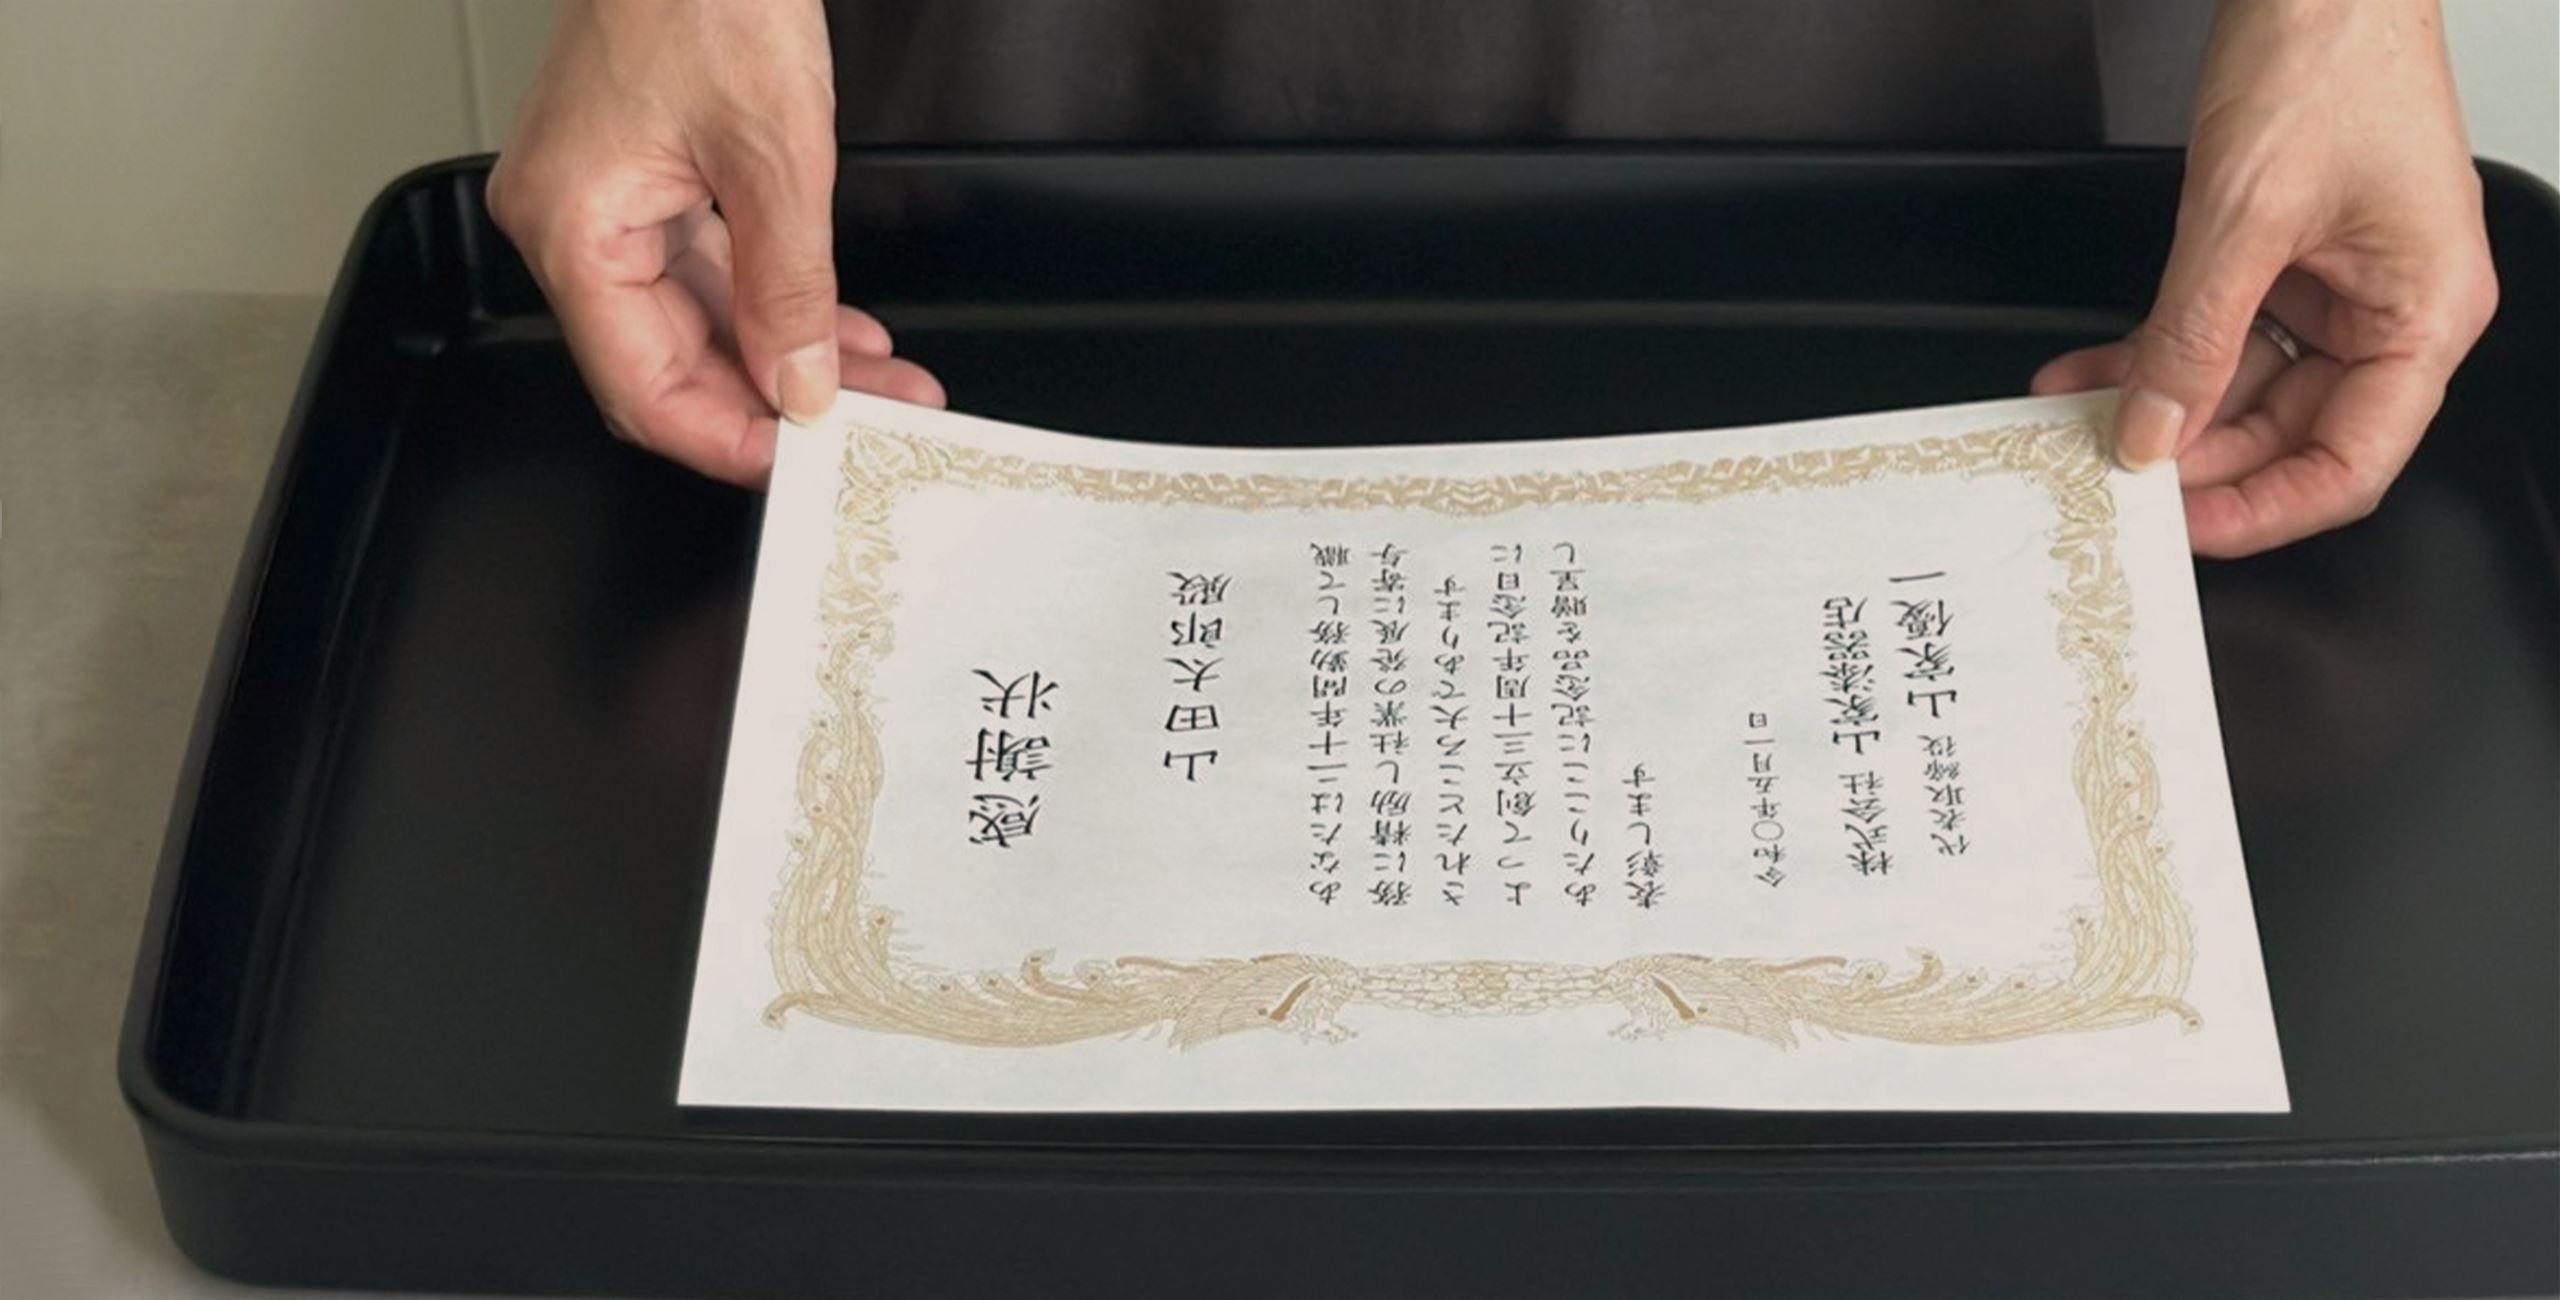 感謝状
山田太郎殿
あなたは二十年間勤務して職
務に精励し社業の発展に寄与
されたところ大であります
よって創立三十周年記念日に
あたりここに記念品を贈呈し
表彰します
令和〇年五月一日
株式会社 山家漆器店
代表取締役 山家優一